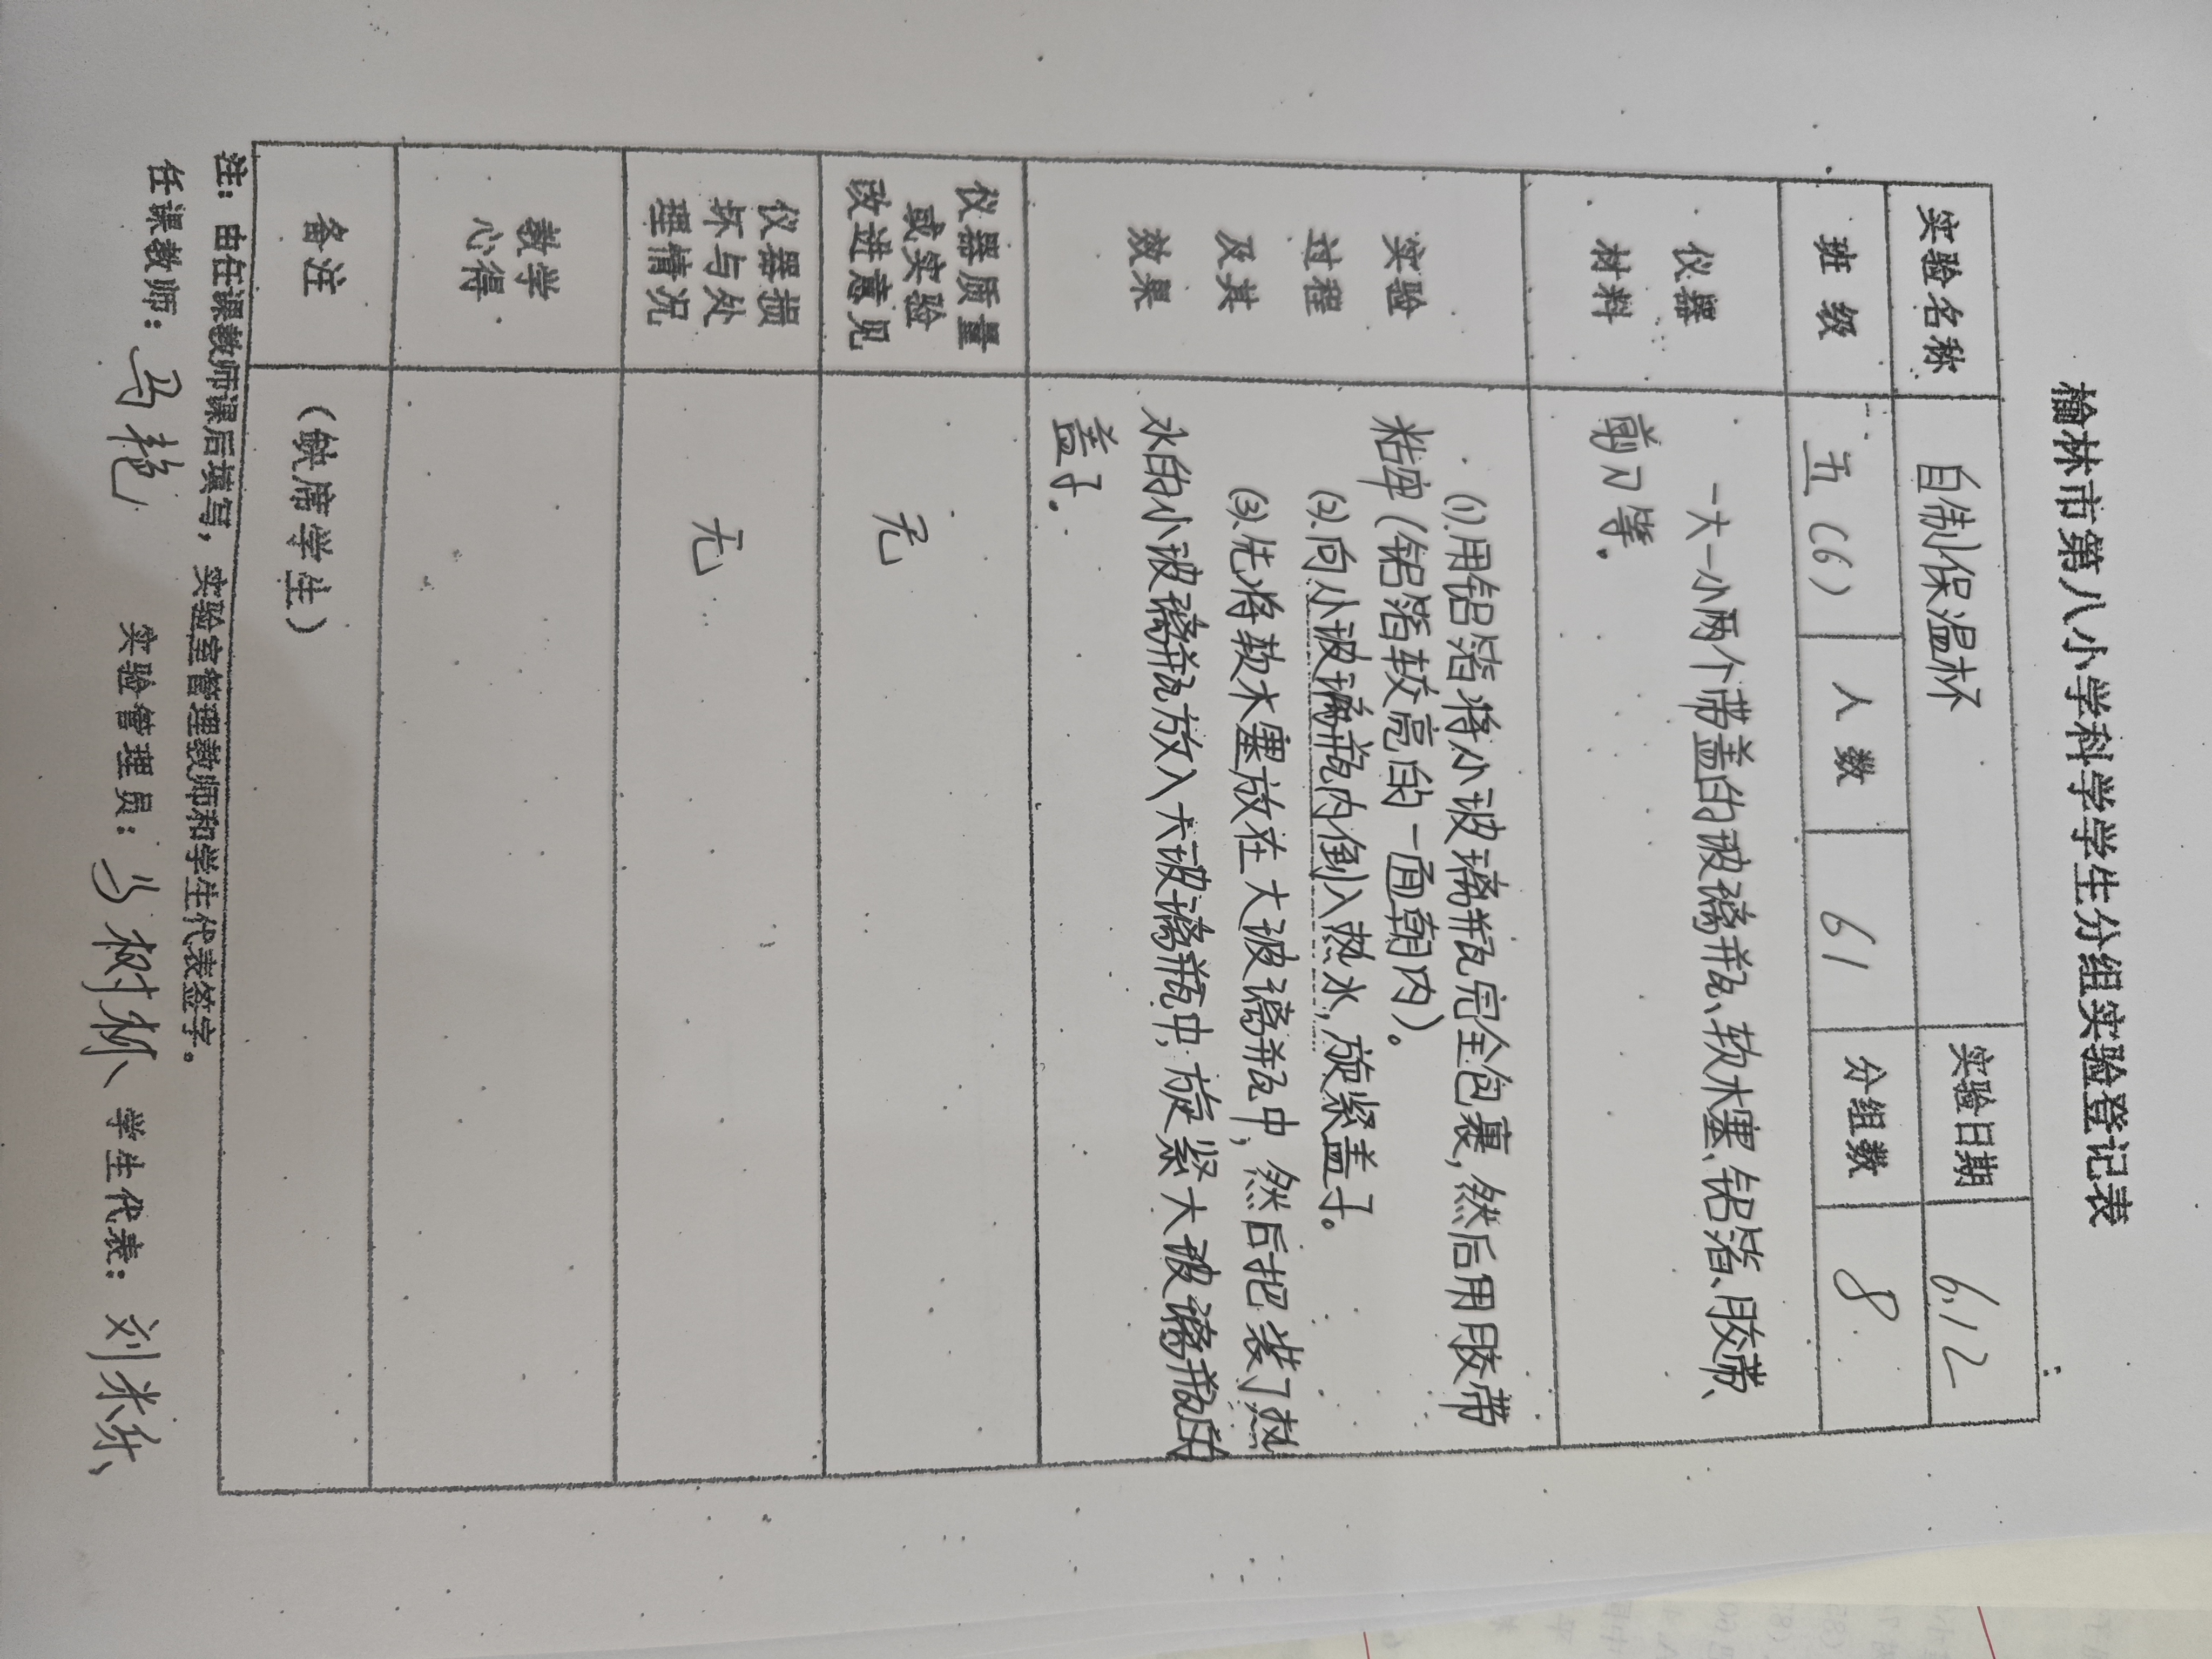 榆林市第八小学科学学生分组实验登记表
实验名称 自制保温杯 实验日期 6.12
班 级 五(6) 人 数 61 分组数 8
仪器
材料
一大一小两个带盖的玻璃瓶、软木塞、铝箔、胶带、
剪刀等.
实验
过程
及其
效果
(1).用铝箔将小玻璃瓶完全包裹,然后用胶带
粘牢(铝箔较亮的一面朝内)。
(2).向小玻璃瓶内倒入热水,旋紧盖子。
(3).先将软木塞放在大玻璃瓶中,然后把装了热
水的小玻璃瓶放入大玻璃瓶中,旋紧大玻璃瓶的
盖子.
仪器质量
或实验
改进意见
无
仪器损
坏与处
理情况
无
教学
心得
备注 (缺席学生)
注:由任课教师课后填写,实验室管理教师和学生代表签字。
任课教师:马艳 实验管理员: 学生代表:刘